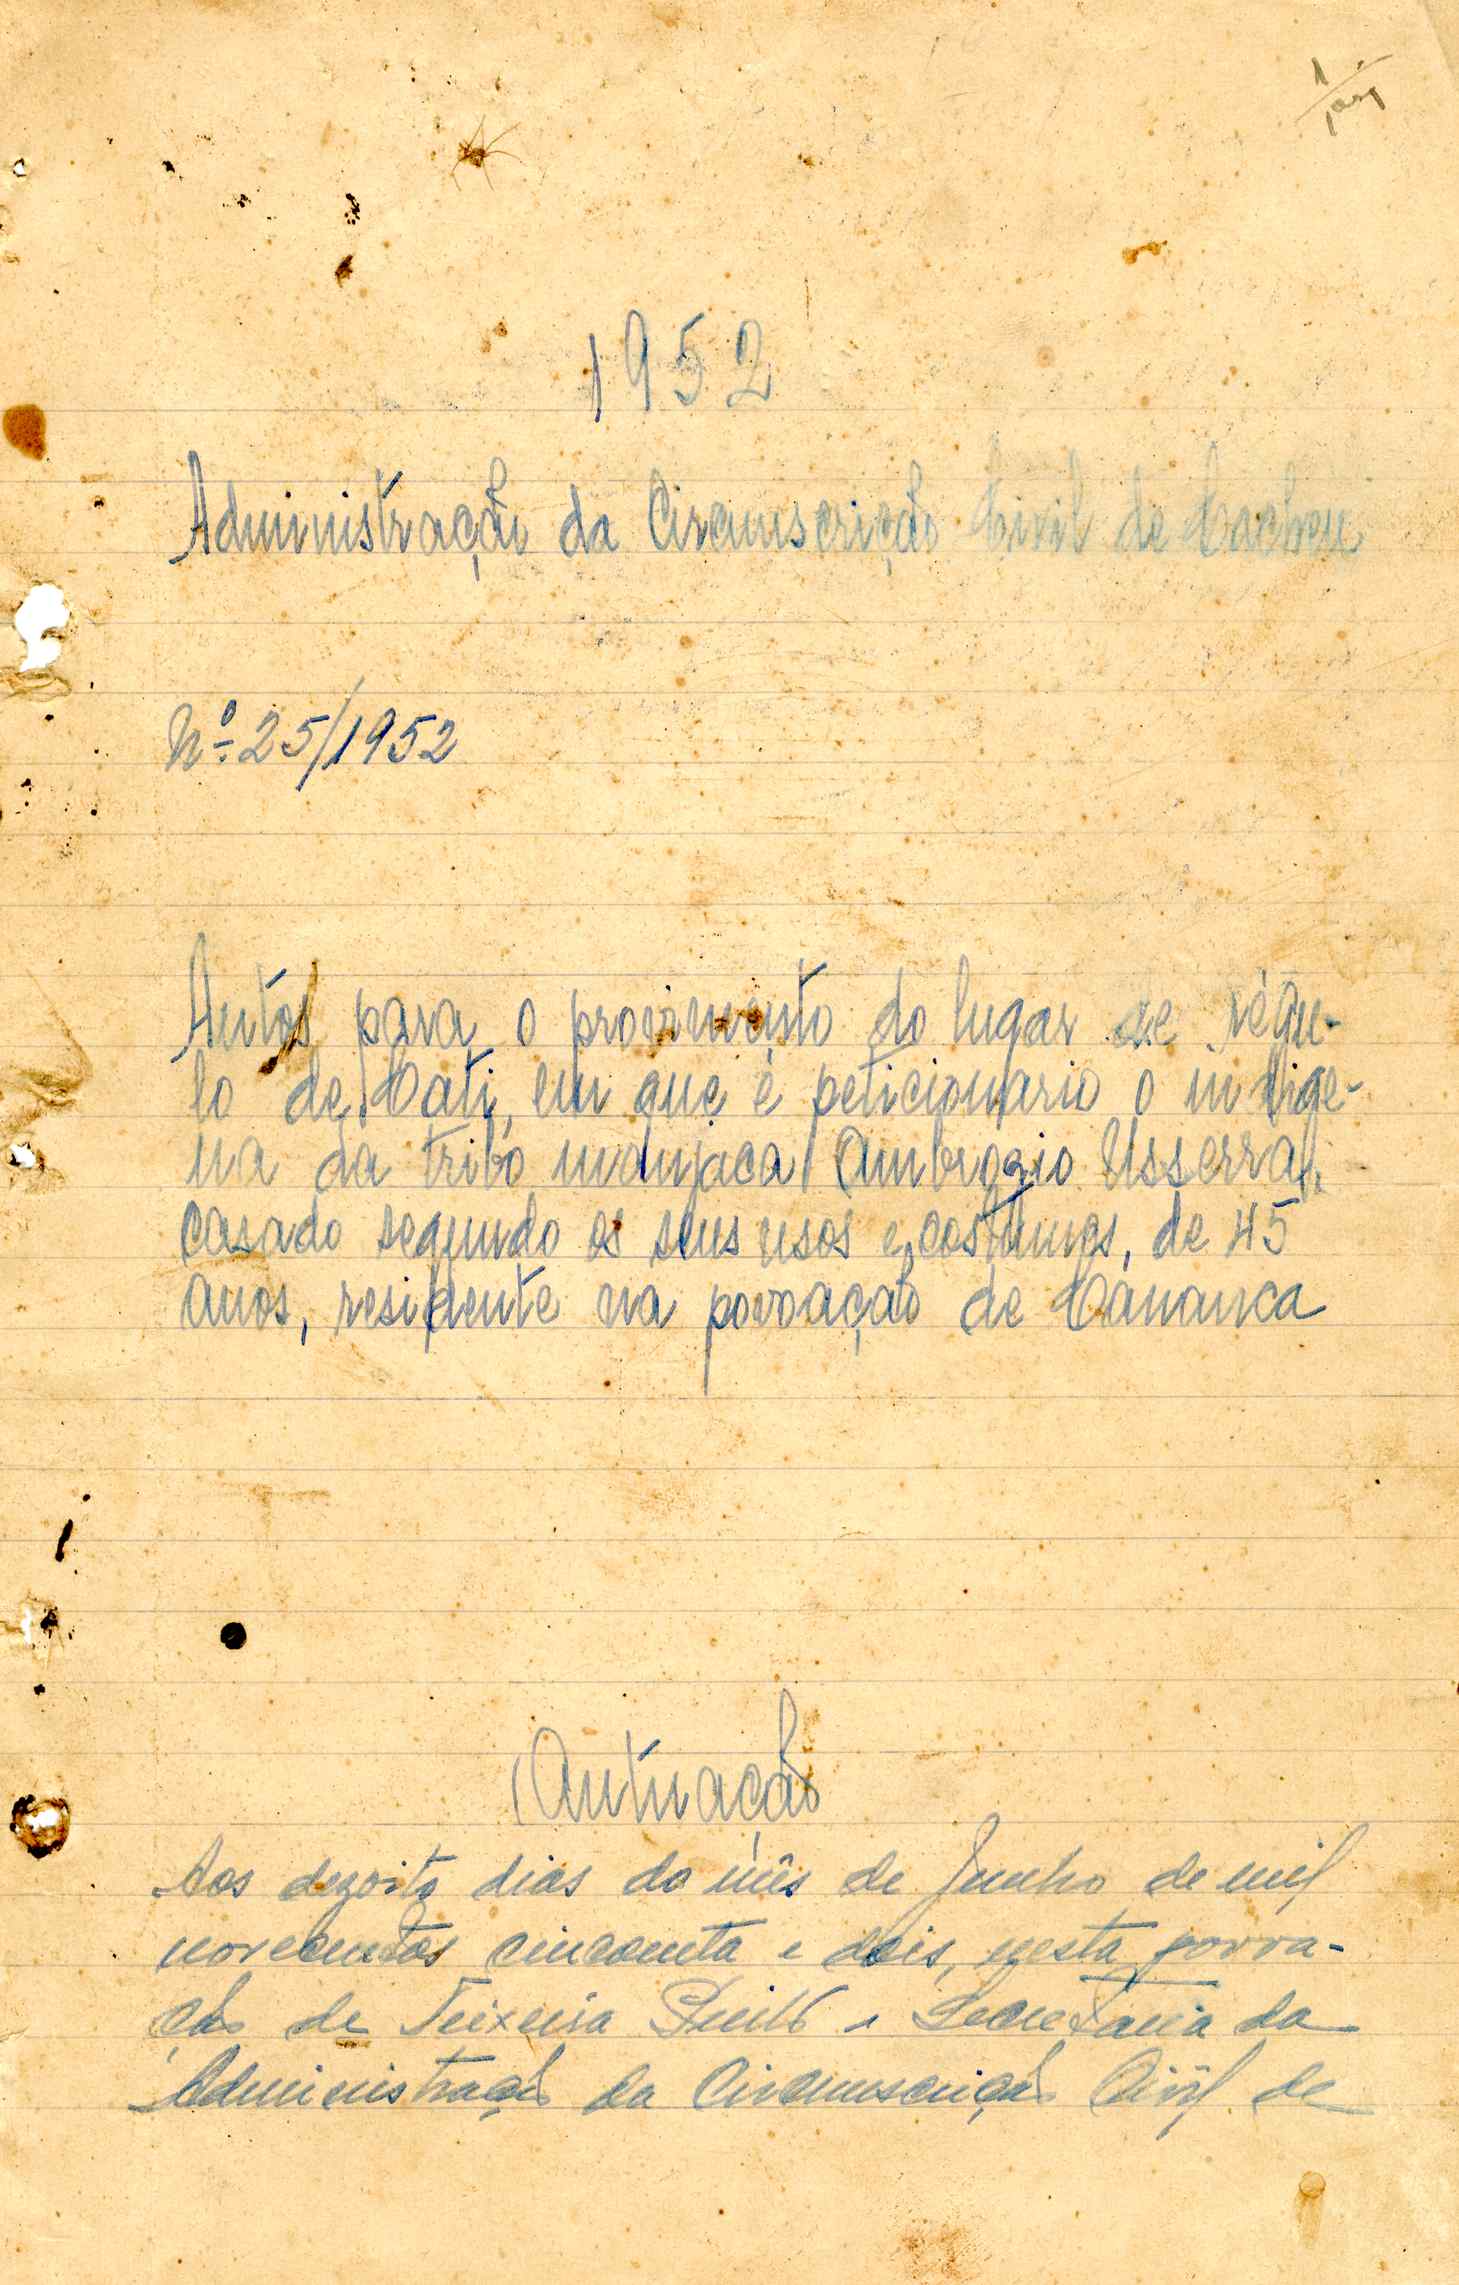 1
1952
Administração da Circunscrição Civil de Cacheu
Nº 25/1952
Autos para o provimento do lugar de régu-
lo de Cati, em que é peticionário o indíge-
na da tribo manjaca Ambrozio Usserra,
casado segundo os seus usos e costumes, de 45
anos, residente na povoação de Cananca
Autuação
Aos dezoito dias do mês de Junho de mil
novecentos cincoenta e dois, nesta povoa-
ção de Teixeira Pinto e Secretaria da
Administração da Circunscrição Civil de